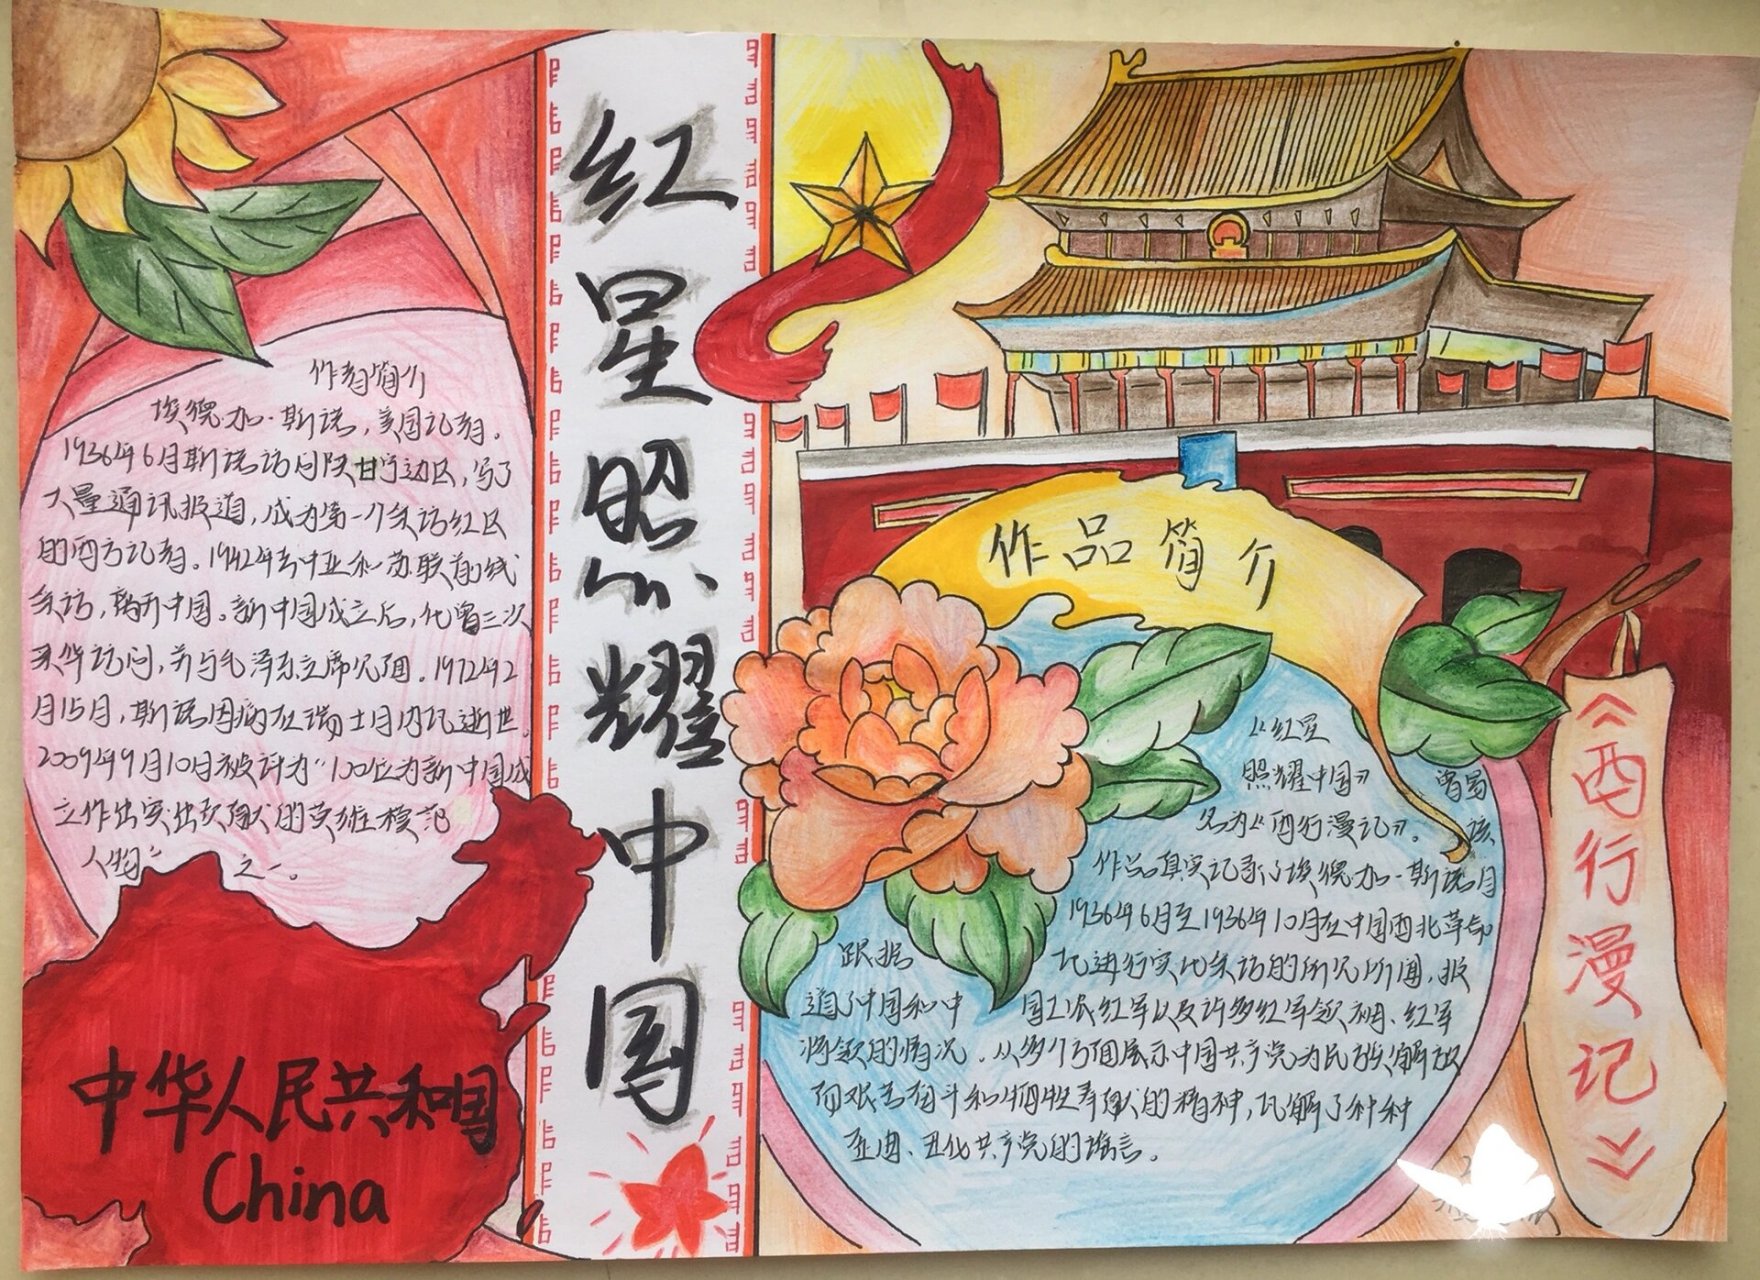 作者简介
埃德加·斯诺，美国记者。
1936年6月斯诺访问陕甘宁边区，写了
大量通讯报道，成为第一个采访红区
的西方记者。1942年去中亚和苏联前线
采访，离开中国。新中国成立后，他曾三次
来华访问，并与毛泽东主席见面。1972年2
月15日，斯诺因病在瑞士日内瓦逝世。
2009年9月10日被评为“100位为新中国成
立作出突出贡献的英雄模范
人物”之一。
中华人民共和国
China
红星照耀中国
作品简介
《红星
照耀中国》曾易
名为《西行漫记》。该
作品真实记录了埃德加·斯诺自
1936年6月至1936年10月在中国西北革命
根据
地进行实地采访的所见所闻，报
道了中国和中
国工农红军以及许多红军领袖、红军
将领的情况。从多个方面展示中国共产党为民族解放
而艰苦奋斗和牺牲奉献的精神，瓦解了种种
歪曲、丑化共产党的谣言。
《西行漫记》